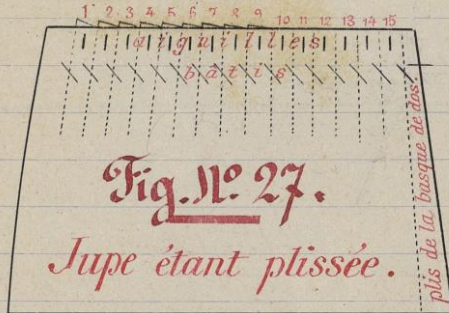 1 2 3 4 5 6 7 8 9 10 11 12 13 14 15
aiguilles
bâtis
Fig. Nº 27.
Jupe étant plissée.
plis de la basque de dos.